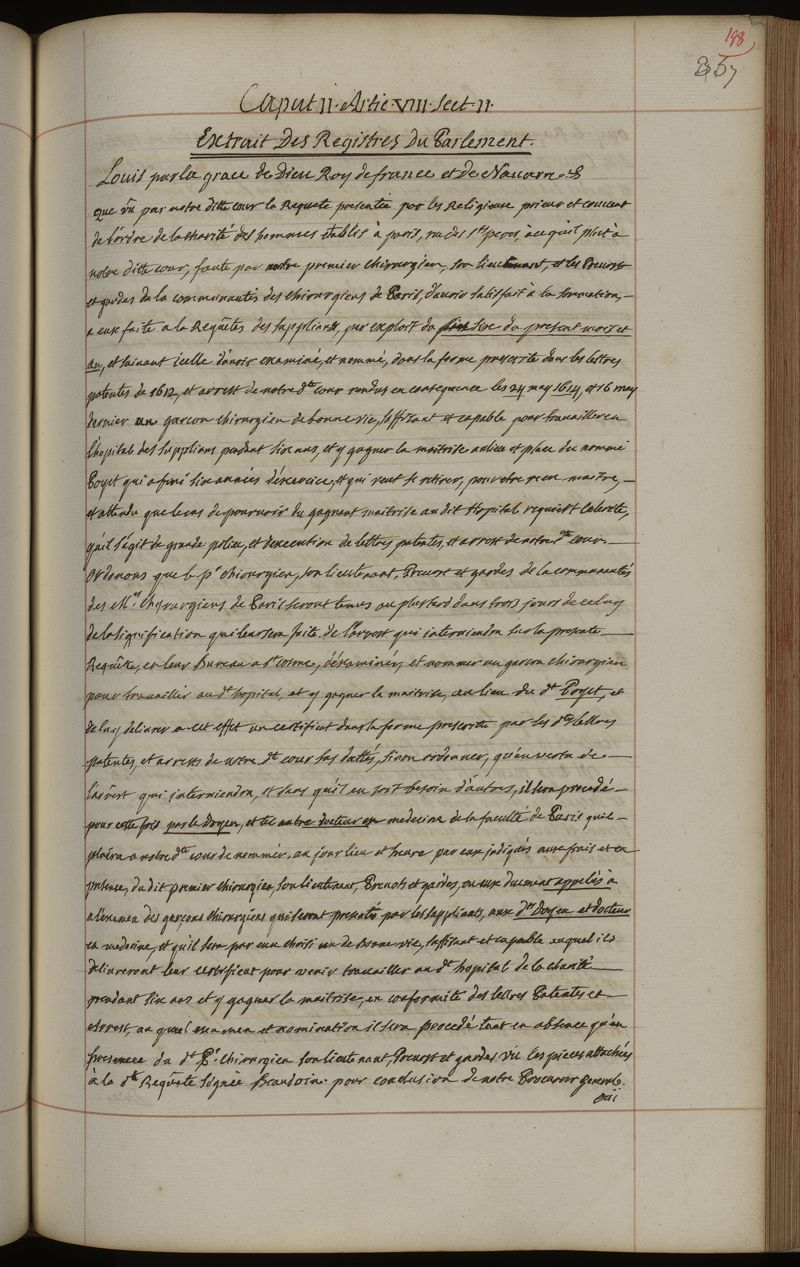 198
357
Caput II. Artic. VIII. Sect. II.
Extrait Des Registres Du Parlement.
Louis par la grace de Dieu Roy de france et de Navarre. &
que vû par notre ditte cour la Requete presentée par les Religieux prieur et couvent
de l'ordre de la charité des hommes établis à paris, rue des Sts peres, à ce qu'il plut à
notre ditte cour, faute par notre premier chirurgien, son lieutenant, et les Prevost
et gardes de la communauté des chirurgiens de Paris, d'avoir satisfait à la sommation,
a eux faite a la Requête des supplians, par exploit du six du present mois et
an, et suivant icelle d'avoir examiné, et nommé, dans la forme prescrite dans les lettres
patentes de 1612, et arrest de notre dte cour rendus en consequence les 24 may 1614, et 16 may
dernier un garcon chirurgien de bonne vie, suffisant et capable pour travailler en
l'hopital des supplians pendant six ans, et y gagner la maitrise au lieu et place du nommé
Poyet qui a fini six années d'exercice, et qui veut se retirer, pour etre receu maitre,
et attendu que le cas de pourvoir du gagnant maitrise au dit Hopital requiert celerité,
qu'il s'agit de grande police, et d'execution de lettres patentes, et arrest de notre dte cour.
Ordonons que le pr chirurgien, son lieutenant, Prevost et gardes de la communauté
des Mes chyrurgiens de Paris seront tenus au plustard dans trois jours de celuy
de la signification qui leur sera faite de l'arrest qui interviendra sur la presente
Requête, en leur Bureau a st cosme, d'examiner, et nommer un garcon chirurgien
pour travailler au dt hopital, et y gagner la maitrise, au lieu du dt Poyet, et
de luy delivrer a cet effet un certificat dans la forme prescritte par les dtes lettres
patentes, et arrests de notre dte cour sus dattés, sinon ordonner, qu'en vertu de
l'arrest qui interviendra, et sans qu'il en soit besoin d'autres, il sera procedé
pour cette fois par le doyen, et tel autre docteur en medecine de la faculté de Paris qu'il
plaira a notre dte cour de nommer, au jour lieu et heure par eux indiqués aux frais et en
presence, du dit premier chirurgien, son lieutenant, Prevots et gardes, ou eux duement appelés à
a l'examen des garçons chirurgiens qui seront presentés par les supplians, aux dts Doyen et docteur
en medecine, et qu'il sera par eux choisi un de bonne vie, suffisant et capable auquel ils
delivreront leur certificat pour venir travailler au dt hopital de la charité
pendant six ans et y gagner la maitrise, en conformité des lettres Patentes et
arrest, au quel examen et nomination il sera procedé tant en absence qu'en
presence du dt Pr. chirurgien son lieutenant, Prevost et gardes vû les pieces attachées
à la dte Requête signée Beaudoin. pour conclusion de notre Procureur general.
oui